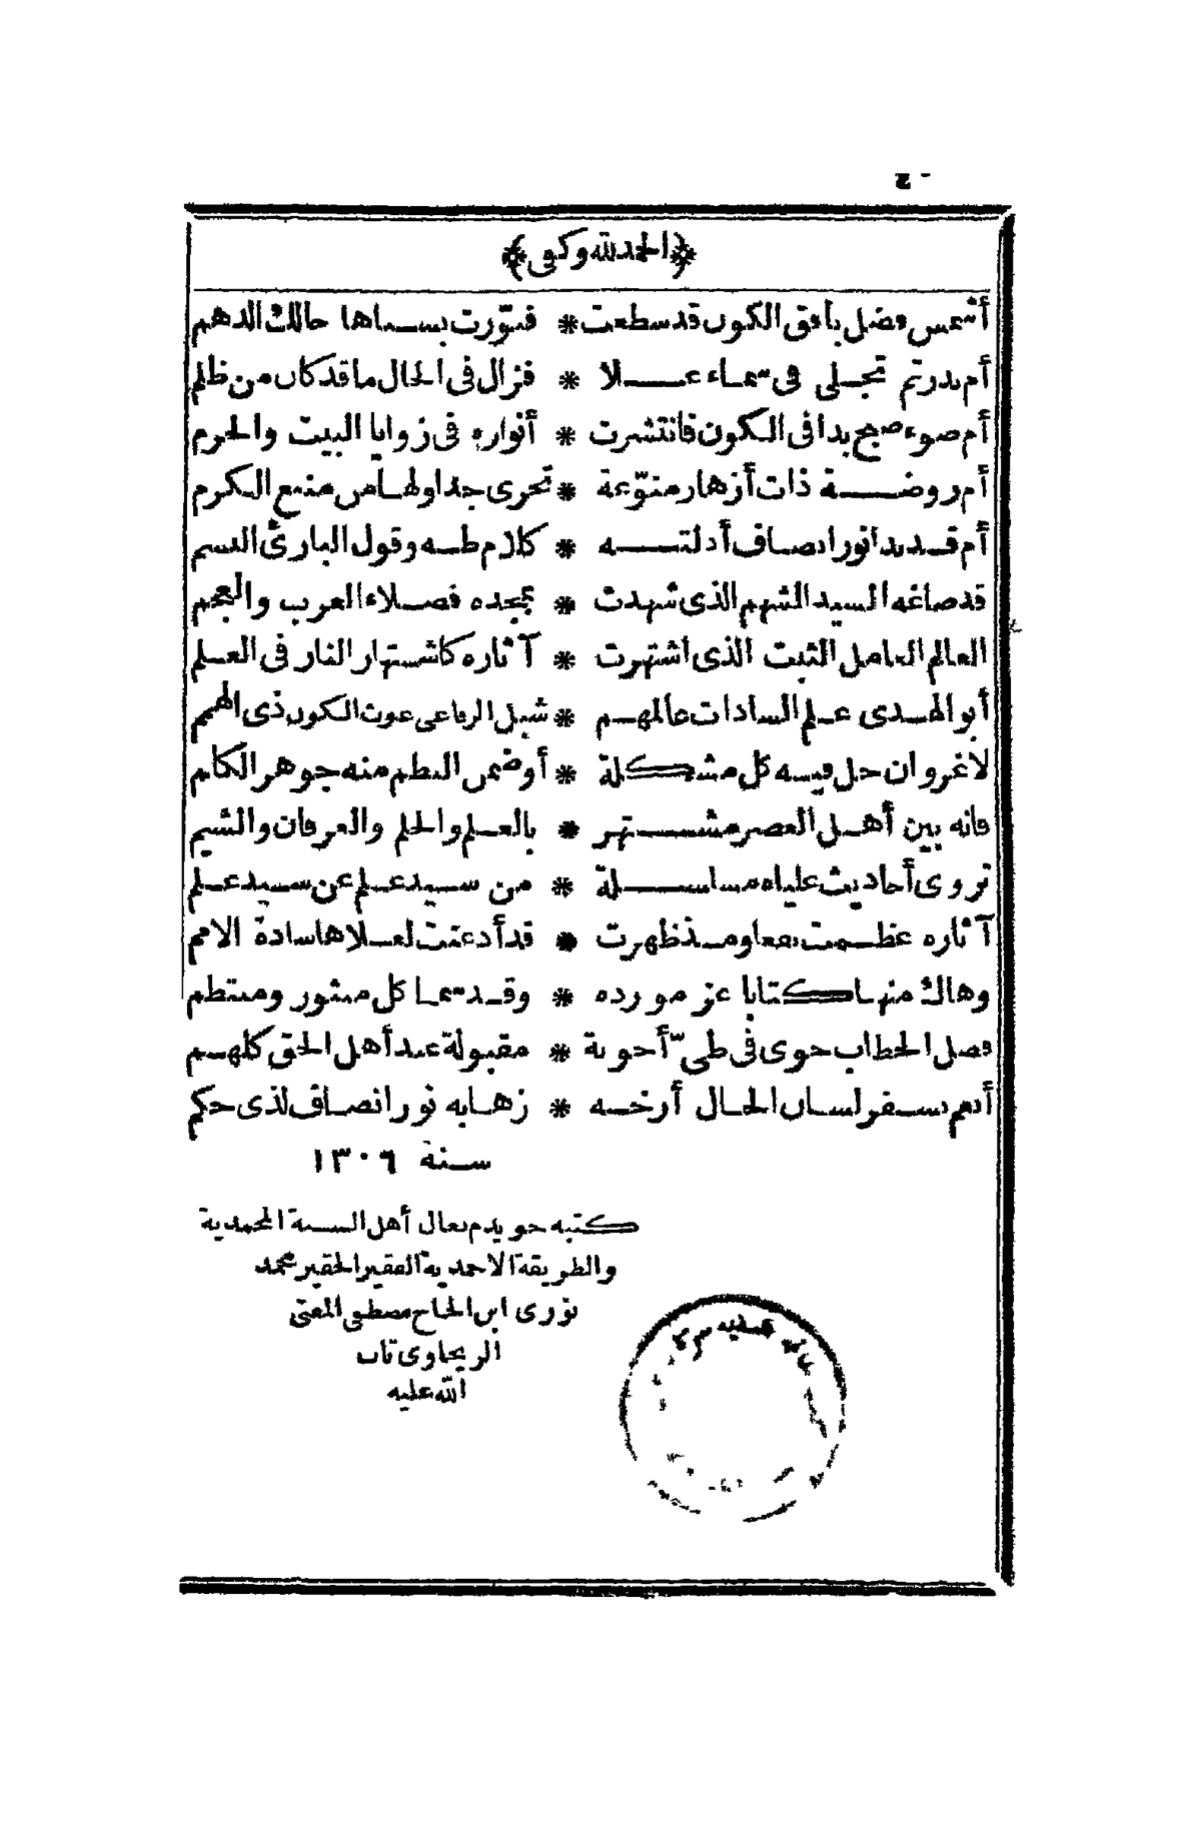 ﴿الحمد لله وكفى﴾
أشمس فضل بأفق الكون قد سطعت * فنوّرت بسناها حالك الدهم
أم بدر تم تجلى في سماء علا * فزال في الحال ما قد كان من ظلم
أم ضوء صبح بدا في الكون فانتشرت * أنواره في زوايا البيت والحرم
أم روضة ذات أزهار منوّعة * تجرى جداولها من منبع الكرم
أم قد بدا نور انصاف أدلته * كلام طه وقول البارئ النسم
قد صاغه السيد الشهم الذى شهدت * بمجده فضلاء العرب والعجم
العالم العامل الثبت الذى اشتهرت * آثاره كاشتهار النار في العلم
أبو الهدى علم السادات عالمهم * شبل الرفاعى غوث الكون ذى الهمم
لا غرو ان حل فيه كل مشكلة * أو ضمن النظم منه جوهر الكلم
فانه بين أهل العصر مشتهر * بالعلم والحلم والعرفان والشيم
تروى أحاديث علياه مسلسلة * من سيد علم عن سيد علم
آثاره عظمت نفعا ومذ ظهرت * قد أذعنت لعلاها سادة الامم
وهاك منها كتابا عز مورده * وقد سما كل منثور ومنتظم
فصل الخطاب حوى في طىّ أجوبة * مقبولة عند أهل الحق كلهم
أنعم بسفر لسان الحال أرخه * زها به نور انصاف لذى حكم
سنة ١٣٠٦
كتبه خويدم نعال أهل السنة المحمدية
والطريقة الاحمدية الفقير الحقير محمد
نورى ابن الحاج مصطفى المفتى
الريحاوى تاب
الله عليه